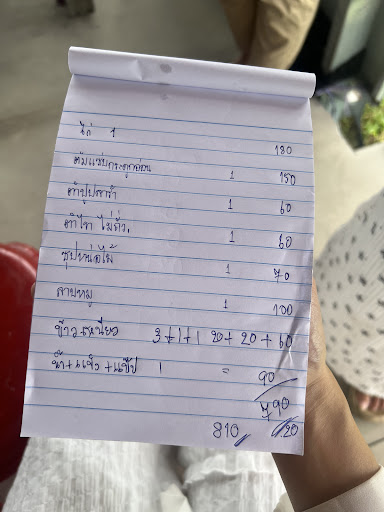 ไก่ 1 180
ต้มแซ่บกระดูกอ่อน 1 150
ตำปูปลาร้า 1 60
ตำไทย ไม่ถั่ว 1 60
ซุปหน่อไม้ 1 70
ลาบหมู 1 100
ข้าว+เหนียว 3+1+1 20+20+60
น้ำ+แข็ง+แป๊ป 1 = 90
790
20
810